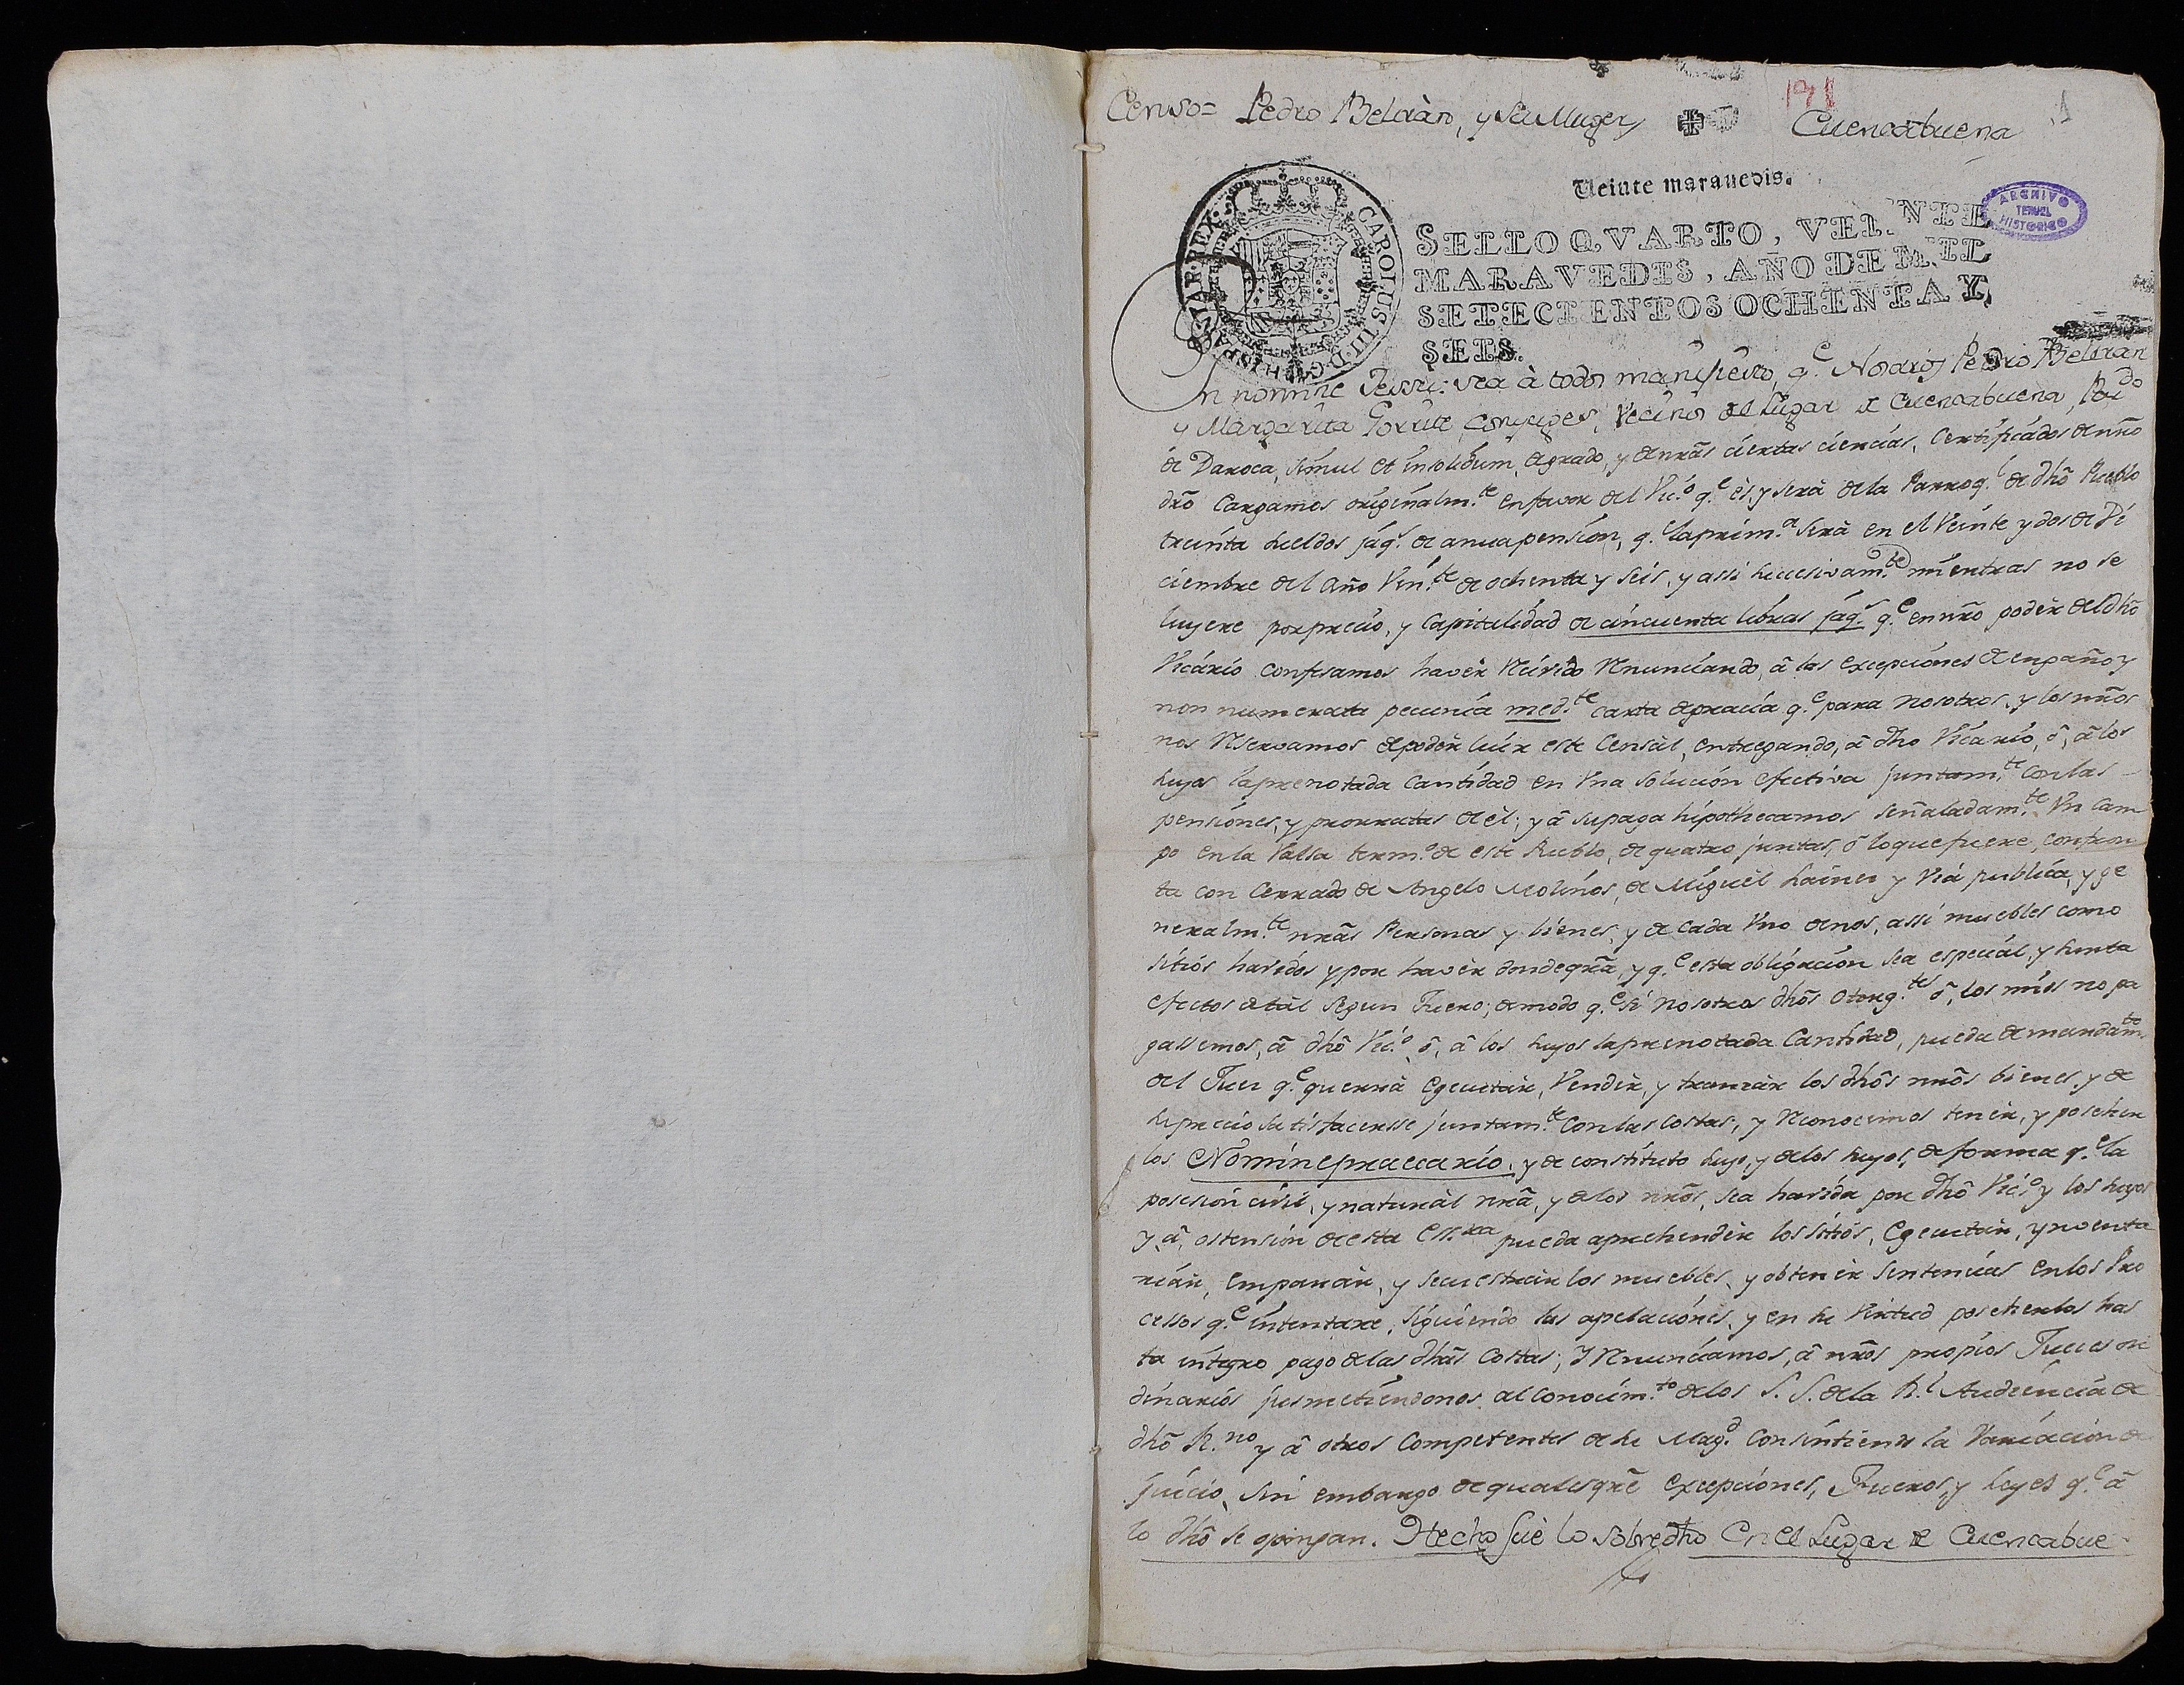 Censo= Pedro Beltràn, y Su Muger
191
Cuencabuena
1
Veinte maravedis.
SELLO QVARTO, VEINTE
MARAVEDIS, AÑO DE MIL
SETECIENTOS OCHENTA Y
SEIS.
CAROLUS III D.G. HISPANIAR. REX
ARCHIVO
TERUEL
HISTORICO
In nomine sea à todos manifiesto, q.e Nosotros Pedro Beltran
y Margarita Gorriz conjuges, Vecinos del Lugar de Cuencabuena,
de Daroca, simul et insolidum, de grado, y de nr̃as ciertas ciencias, Certificados de nr̃o
dr̃o Cargamos originalm.te en favor del Vic.o q.e és, y será de la Parroq.l de dhõ Pueblo
treinta sueldos jaq.s de anua pension, q.e la prim.a será en el Veinte y dos de Di
ciembre del año Vin.te de ochenta y seis, y assi succesivam.te mientras no se
luyere por precio, y Capitalidad de cincuenta libras jaq.s q.e en nr̃o poder del dhõ
Vicário confesamos havér Recivido Renunciando, â las excepciones de engaño y
non numerata pecunia med.te carta de gracia q.e para nosotros, y los nr̃os
nos Reservamos de poder luir este Censàl, entregando, â dho Vicario, ô, â los
suyos la prenotada Cantidad en Una solucion efectiva juntam.te con las
pensiones, y prorratas de èl; y â su paga hipothecamos señaladam.te Un cam
po en la Valsa term.o de este Pueblo, de quatro juntas, ô lo que fuere, confron
ta con Cerrado de Angelo Molinos, de Miguèl Lainez y Via publica, y ge
neralm.te nr̃as Personas y bienes, y de cada Uno de nos, assi muebles como
sitios havidos y por havèr dondeqr̃a, y q.e esta obligacion sea especial, y surta
efectos de tàl segun Fuero; de modo q.e si nosotros dhõs Otorg.tes ô, los nr̃os no pa
gassemos, â dhõ Vic.o ô, â los suyos la prenotada Cantidad, pueda de mandam.to
del Juez q.e querrà egecutàr, Vendèr, y tranzàr los dhõs nr̃os bienes, y de
su precio satisfacersse juntam.te con las costas, y Reconocemos tenèr, y posehèr
los Nomine precario, y de constituto suyo, y de los suyos, de forma q.e la
posesion civil, y naturàl nr̃a, y de los nr̃os, sea havida por dhõ Vic.o y los suyos
y, â, ostension de esta Ess.ra pueda aprehendèr los sitios, Egecutàr, ynventa
riàr, Emparàr, y secuestràr los muebles, y obtenèr Sentencias en los Pro
cessos q.e intentare, siguiendo las apelaciónes, y en su Virtud posehèrlos has
ta integro pago de las dhãs Costas; Y Renunciamos, â nr̃os propios Jueces or
dinariós jusmetiendonos al conocim.to de los S. S. de la R.l Audiencia de
dhõ R.no y â otros Competentes de su Mag.d Consintiendo la Variación de
juicio, sin embargo de qualesqr̃e excepciónes, Fueros, y Leyes q.e â
lo dhõ se opongan. Hecho fuè lo sobredho En el Lugar de Cuencabue